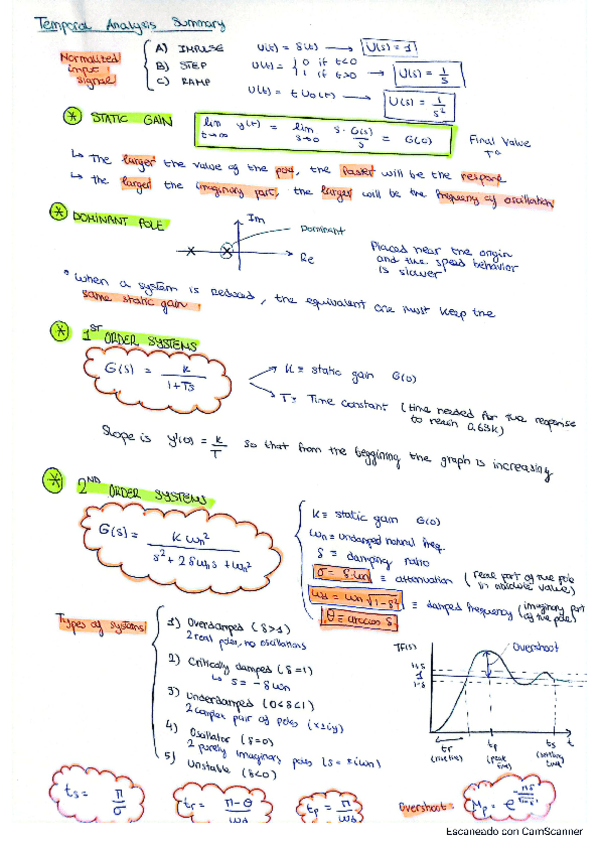 Temporal Analysis Summary
Normalized input signal
A) IMPULSE U(t) = δ(t) → U(s) = 1
B) STEP U(t) = { 0 if t<0 1 if t>0 → U(s) = 1/s
C) RAMP U(t) = t U₀(t) → U(s) = 1/s²
* STATIC GAIN lim t→∞ y(t) = lim s→0 s · G(s)/s = G(0) Final Value Tº
↳ The larger the value of the pole, the faster will be the response
↳ the larger the imaginary part, the larger will be the frequency of oscillation
* DOMINANT POLE
Im
Dominant
Re
Placed near the origin
and the speed behavior
is slower
* When a system is Reduced, the equivalent one must keep the
same static gain.
* 1ST ORDER SYSTEMS
G(s) = K / 1+Ts
K ≡ static gain G(0)
T ≡ Time Constant (time needed for the response
to reach 0.63K)
Slope is y'(0) = K/T so that from the beggining the graph is increasing
* 2ND ORDER SYSTEMS
G(s) = K ωn² / s² + 2δωns + ωn²
K ≡ static gain G(0)
ωn ≡ undamped natural freq.
δ ≡ damping ratio
σ = δ·ωn ≡ attenuation (real part of the pole in absolute value)
ωd = ωn √1-δ² ≡ damped frequency (imaginary part of the pole)
θ = arccos δ
Types of systems
1) Overdamped (δ>1)
2 real poles, no oscillations
2) Critically damped (δ=1)
↳ s = -δωn
3) Underdamped (0<δ<1)
2 complex pair of poles (x±iy)
4) Oscillator (δ=0)
2 purely imaginary poles (s = ±iωn)
5) Unstable (δ<0)
Overshoot
1
t
tr tp ts
(rise time) (peak time) (settling time)
ts = π/σ
tr = π-θ/ωd
tp = π/ωd
Overshoot: Mp = e
Escaneado con CamScanner